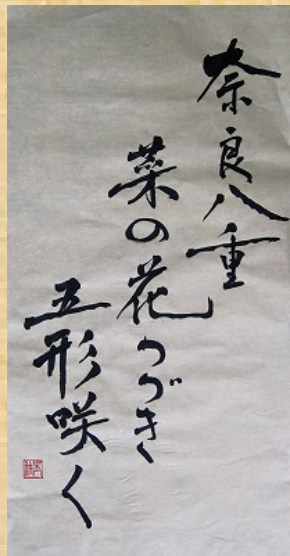 奈良八重
菜の花つづき
五形咲く